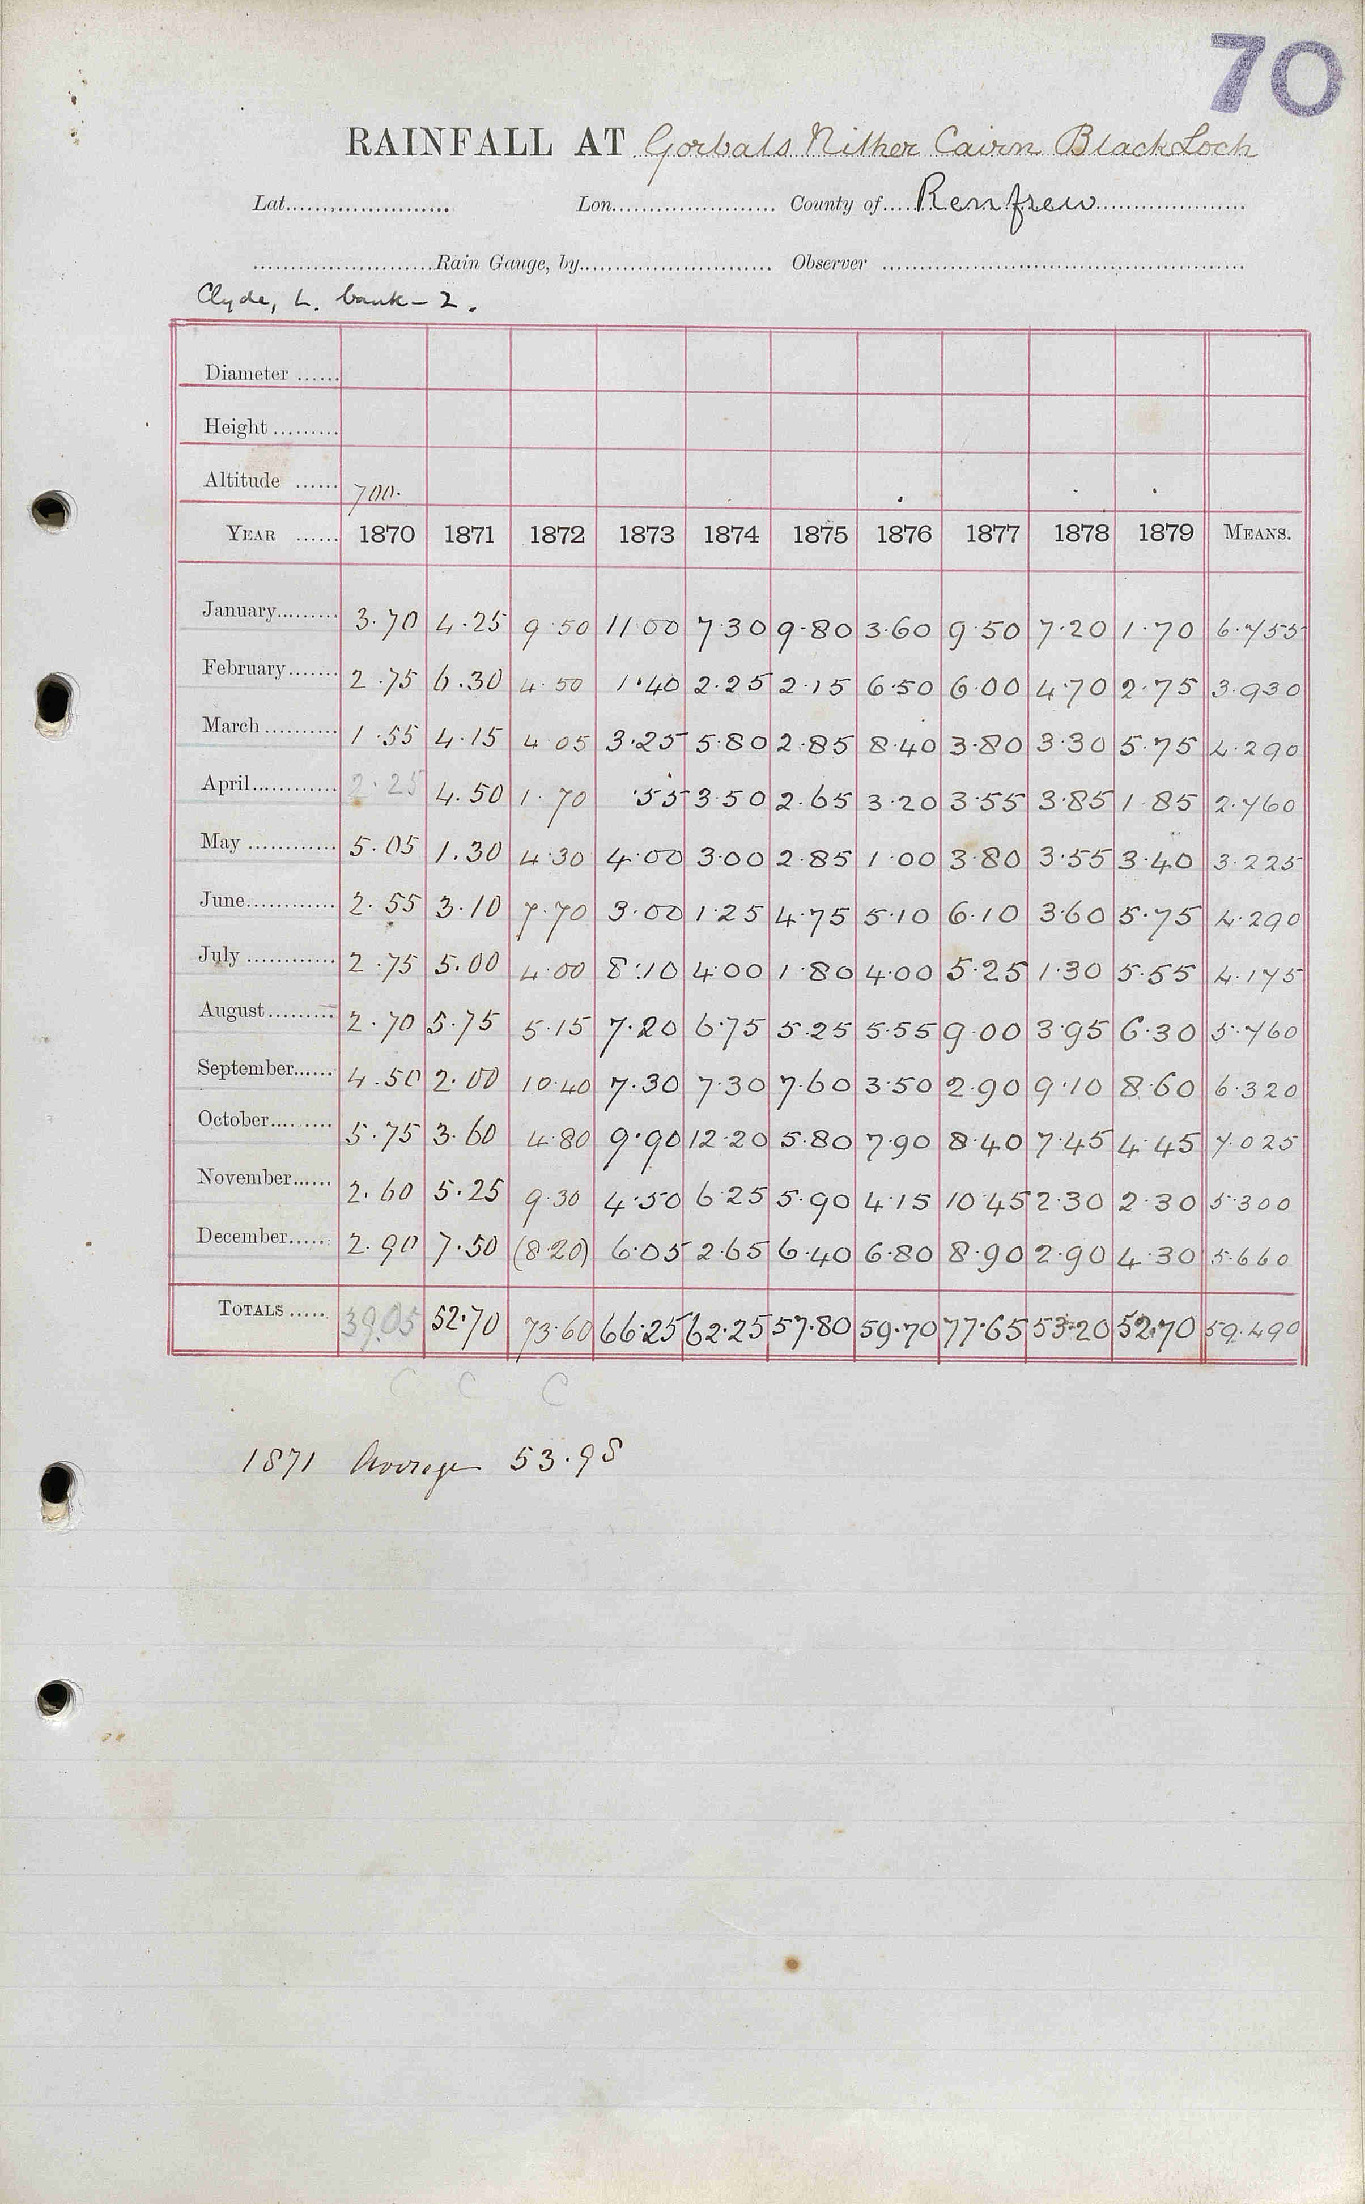 70
RAINFALL AT Gorbals Nither Cairn Black Loch
Lat. Lon. County of Renfrew
Rain Gauge, by Observer
Clyde, L. bank - 2.
Diameter
Height
Altitude 700.
YEAR 1870 1871 1872 1873 1874 1875 1876 1877 1878 1879 MEANS.
January 3.70 4.25 9.50 11.00 7.30 9.80 3.60 9.50 7.20 1.70 6.755
February 2.75 6.30 4.50 1.40 2.25 2.15 6.50 6.00 4.70 2.75 3.930
March 1.55 4.15 4.05 3.25 5.80 2.85 8.40 3.80 3.30 5.75 4.290
April 2.25 4.50 1.70 .55 3.50 2.65 3.20 3.55 3.85 1.85 2.760
May 5.05 1.30 4.30 4.00 3.00 2.85 1.00 3.80 3.55 3.40 3.225
June 2.55 3.10 7.70 3.00 1.25 4.75 5.10 6.10 3.60 5.75 4.290
July 2.75 5.00 4.00 8.10 4.00 1.80 4.00 5.25 1.30 5.55 4.175
August 2.70 5.75 5.15 7.20 6.75 5.25 5.55 9.00 3.95 6.30 5.760
September 4.50 2.00 10.40 7.30 7.30 7.60 3.50 2.90 9.10 8.60 6.320
October 5.75 3.60 4.80 9.90 12.20 5.80 7.90 8.40 7.45 4.45 7.025
November 2.60 5.25 9.30 4.50 6.25 5.90 4.15 10.45 2.30 2.30 5.300
December 2.90 7.50 (8.20) 6.05 2.65 6.40 6.80 8.90 2.90 4.30 5.660
TOTALS 39.05 52.70 73.60 66.25 62.25 57.80 59.70 77.65 53.20 52.70 59.490
C C C
1871 Average 53.98